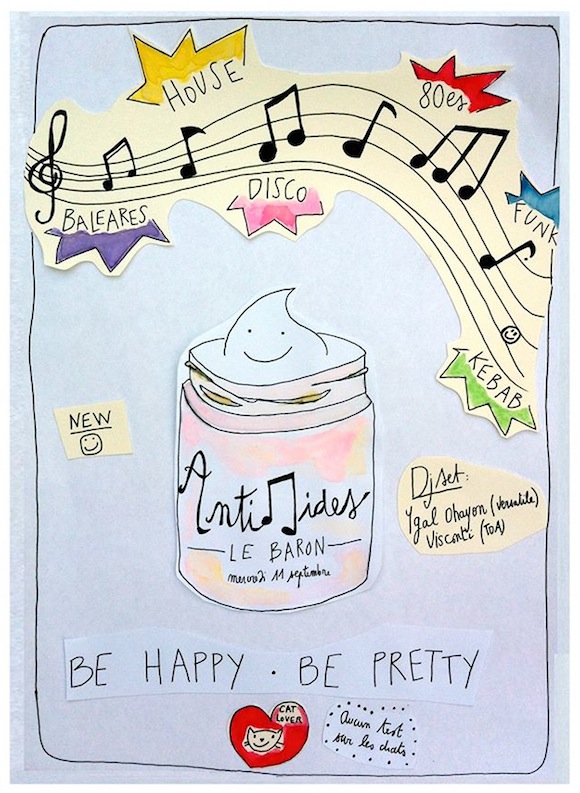 HOUSE
80es
DISCO
BALEARES
FUNK
KEBAB
NEW
Anti♫ides
LE BARON
mercredi 11 septembre
Dj set:
Ygal Ohayon (Versatile)
Visconti (TOA)
BE HAPPY . BE PRETTY
CAT
LOVER
Aucun test
sur les chats